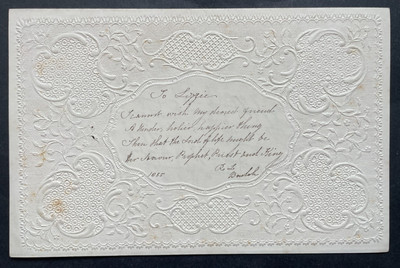 To Lizzie
I cannot wish our dearest friend
A tender, holier, happier thing
Than that the Lord of life might be
Her Saviour, Prophet, Priest and King
1850